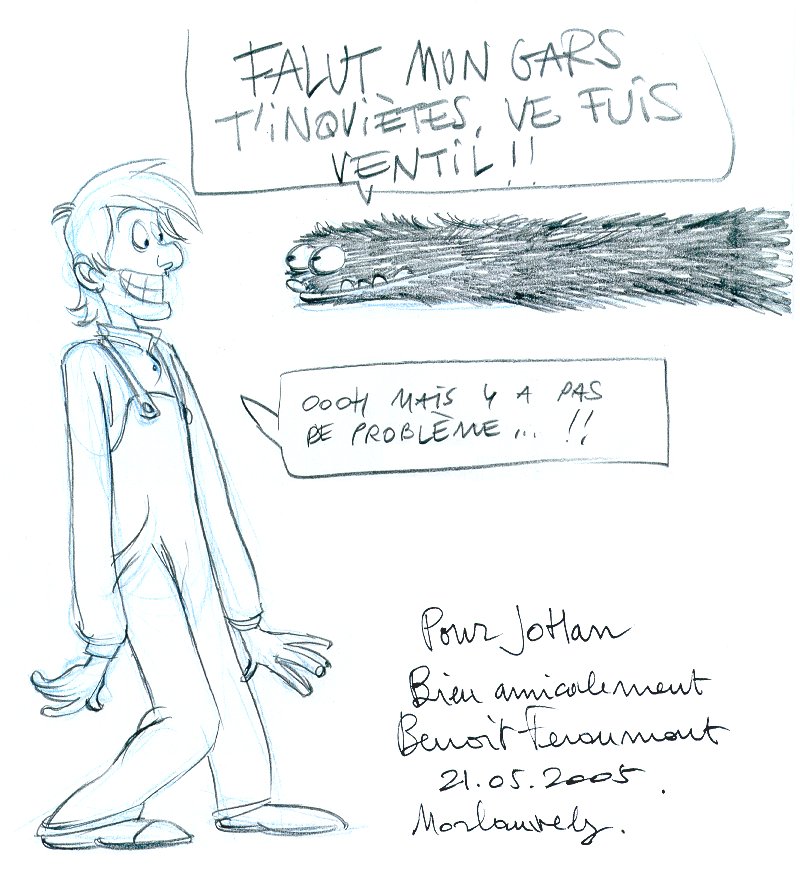 FALUT MON GARS
T'INQUIÈTES, VE FUIS
VENTIL !!
OOOH MAIS Y A PAS
DE PROBLÈME... !!
Pour JoHan
Bien amicalement
Benoît Feroumont
21.05.2005.
Morlanwelz.